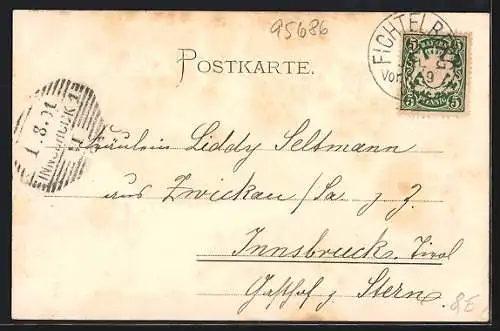 95686
POSTKARTE.
FICHTELB
Vor
9
5 BAYERN 5
5 PFENNIG 5
INNSBRUCK 1
1.8.01
Fräulein Liddy Seltmann
aus Zwickau/Sa. z. Z.
Innsbruck. Tirol
Gasthof z. Stern.
8E